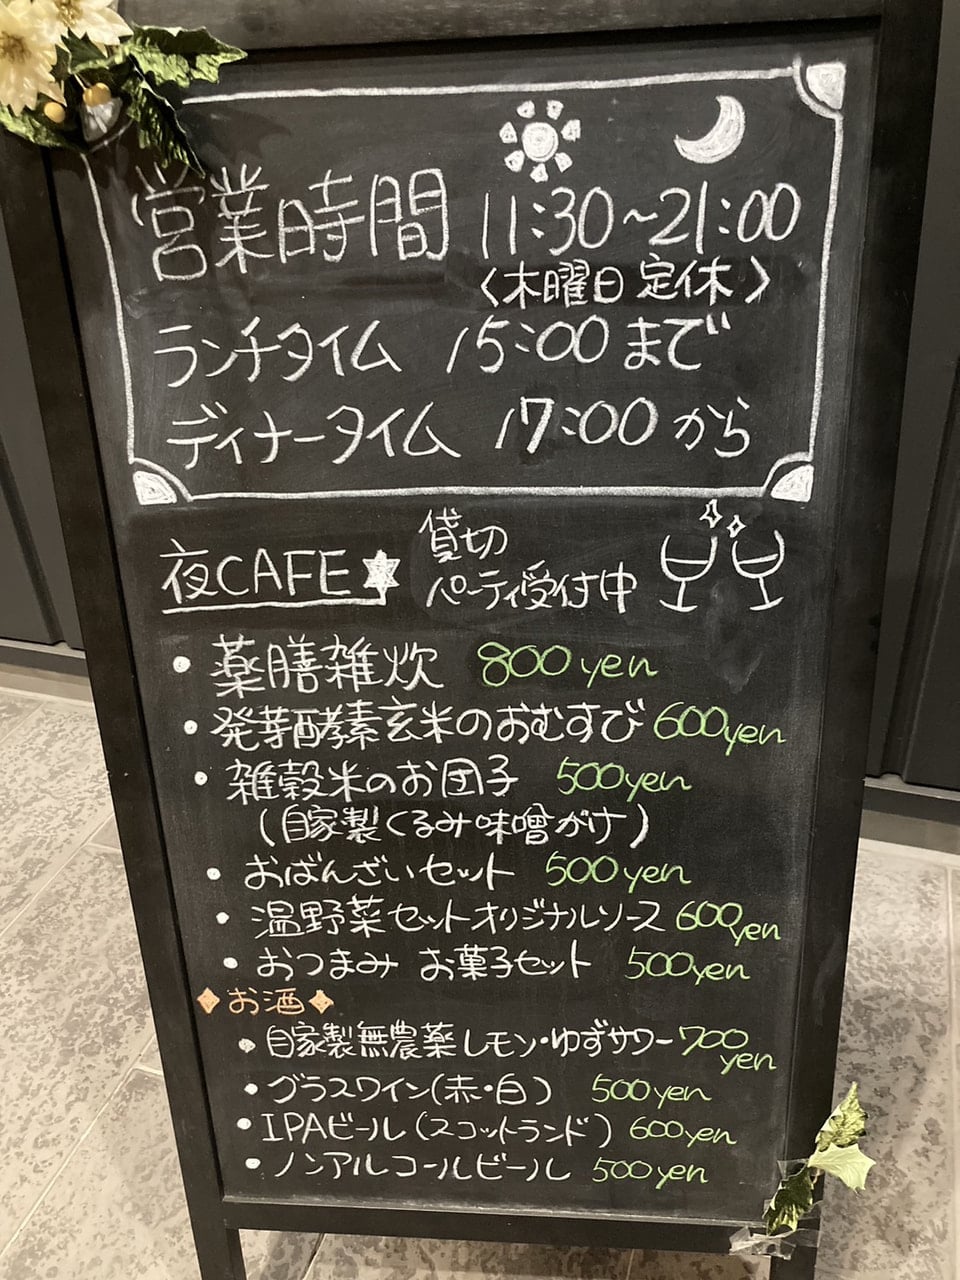 営業時間 11:30~21:00
〈木曜日定休〉
ランチタイム 15:00まで
ディナータイム 17:00から
夜CAFE
貸切
パーティ受付中
・薬膳雑炊 800yen
・発芽酵素玄米のおむすび 600yen
・雑穀米のお団子 500yen
(自家製くるみ味噌がけ)
・おばんざいセット 500yen
・温野菜セットオリジナルソース 600yen
・おつまみ お菓子セット 500yen
お酒
・自家製無農薬レモン・ゆずサワー 700yen
・グラスワイン(赤・白) 500yen
・IPAビール(スコットランド) 600yen
・ノンアルコールビール 500yen